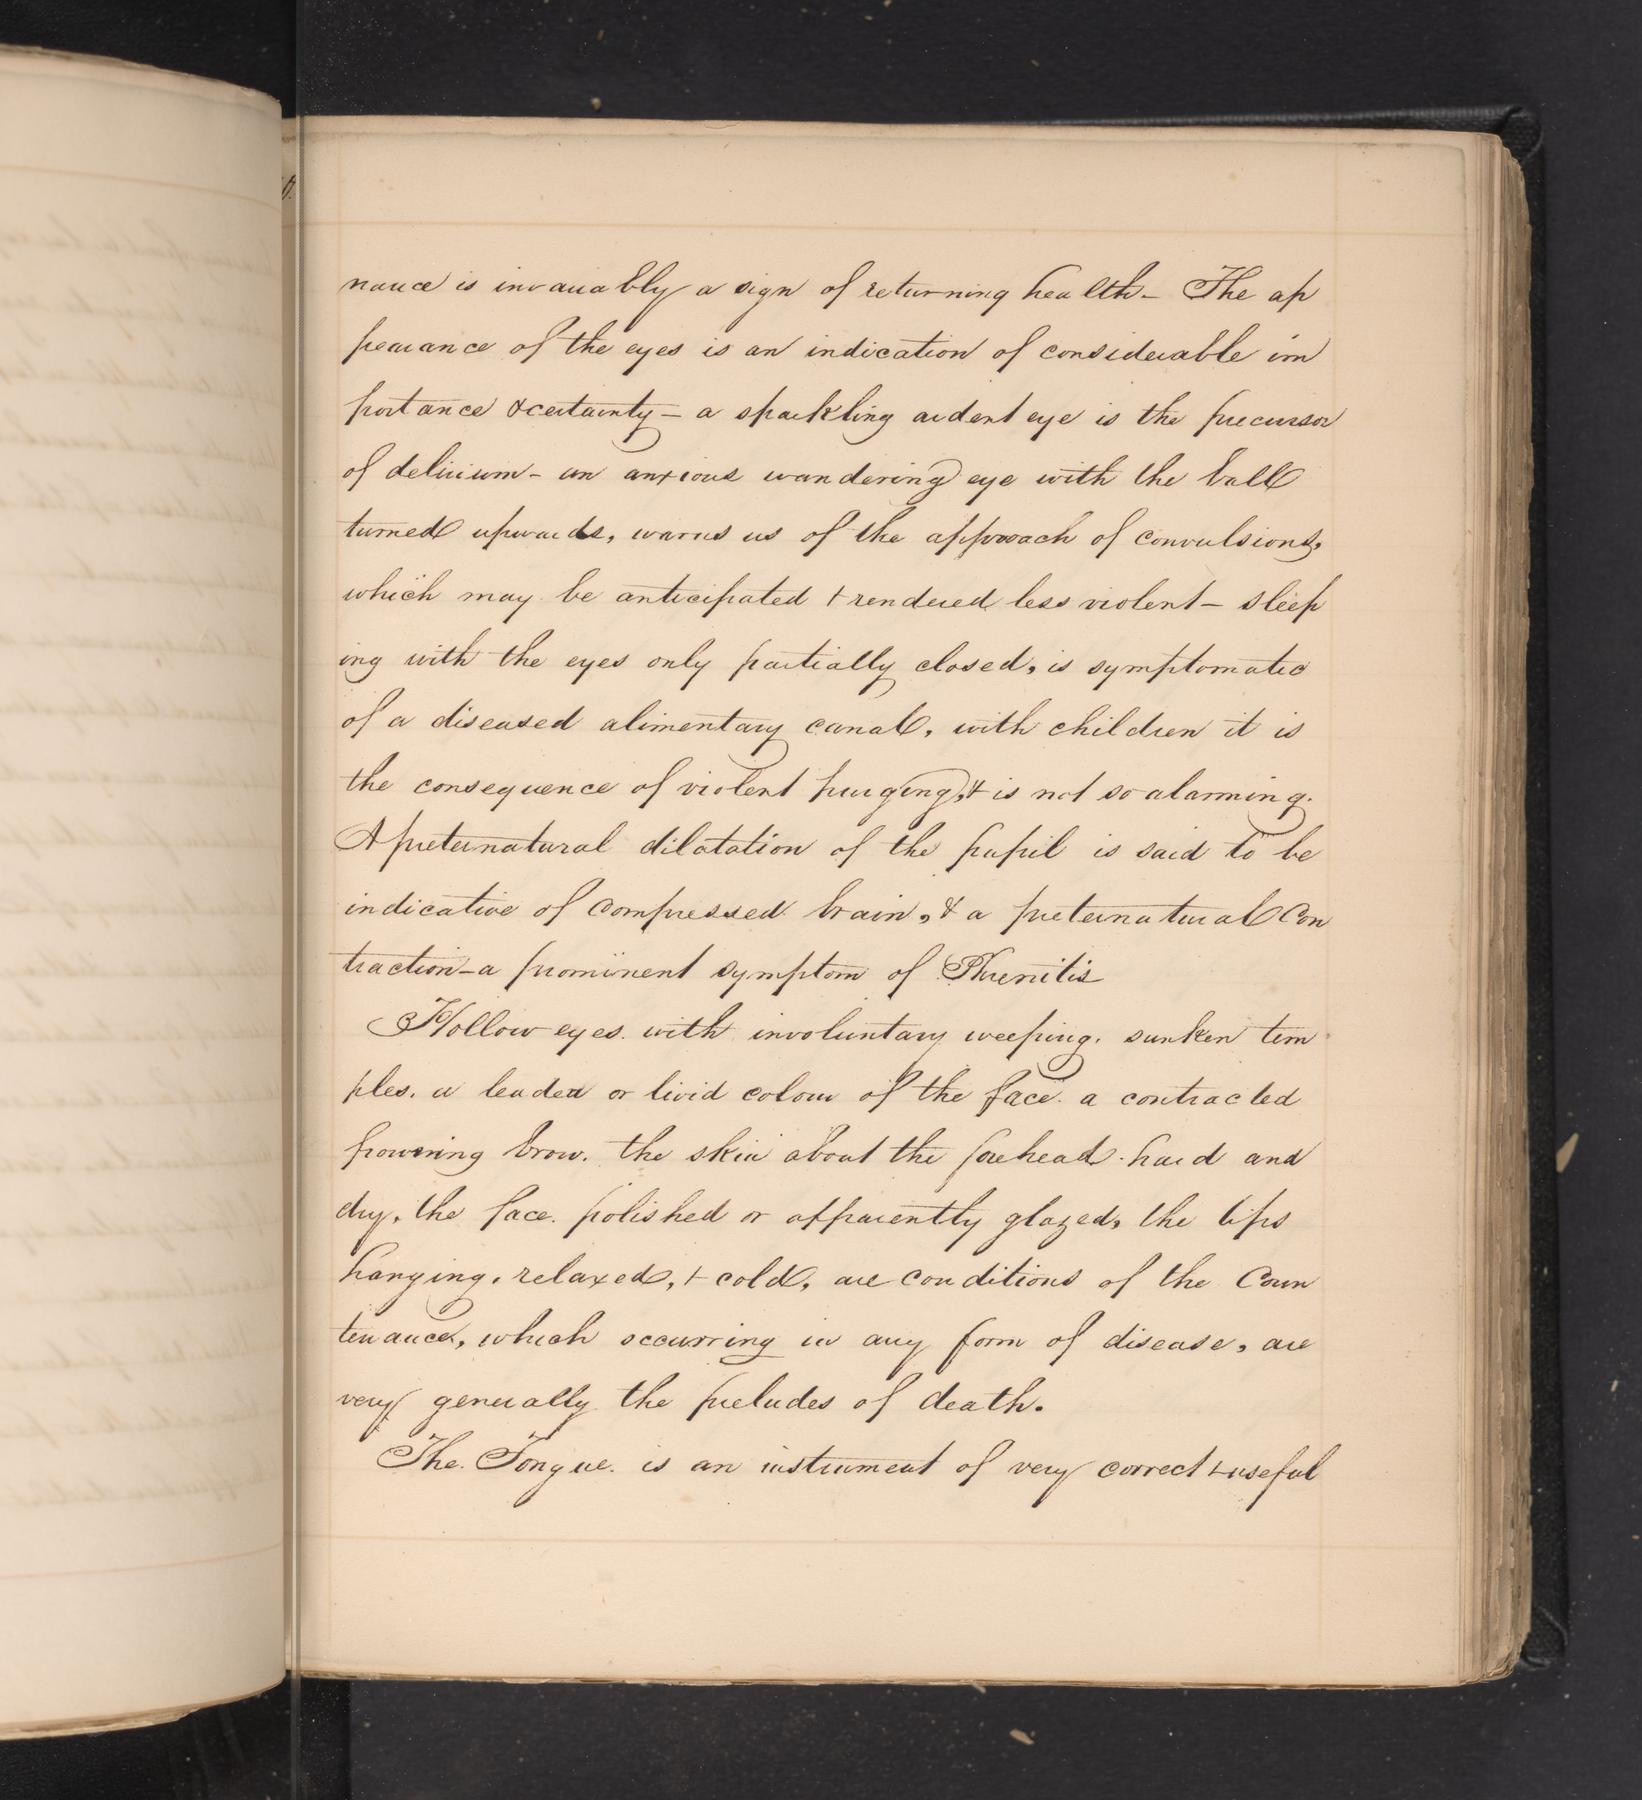 nance is invariably a sign of returning health - The ap
pearance of the eyes is an indication of considerable im
portance & certainty - a sparkling ardent eye is the precursor
of delirium - an anxious wandering eye with the ball
turned upwards, warns us of the approach of convulsions,
which may be anticipated & rendered less violent - sleep
ing with the eyes only partially closed, is symptomatic
of a diseased alimentary canal, with children it is
the consequence of violent purging, & is not so alarming.
A preternatural dilatation of the pupil is said to be
indicative of compressed brain, & a preternatural Con
traction - a prominent symptom of Phrenitis
Hollow eyes. with involuntary weeping. sunken tem
ples. a leaden or livid colour of the face. a contracted
frowning brow. the skin about the forehead. hard and
dry, the face. polished or apparently glazed, the lips
hanging, relaxed, & cold, are conditions of the Coun
tenance, which occurring in any form of disease, are
very generally the preludes of death.
The. Tongue. is an instrument of very correct & useful